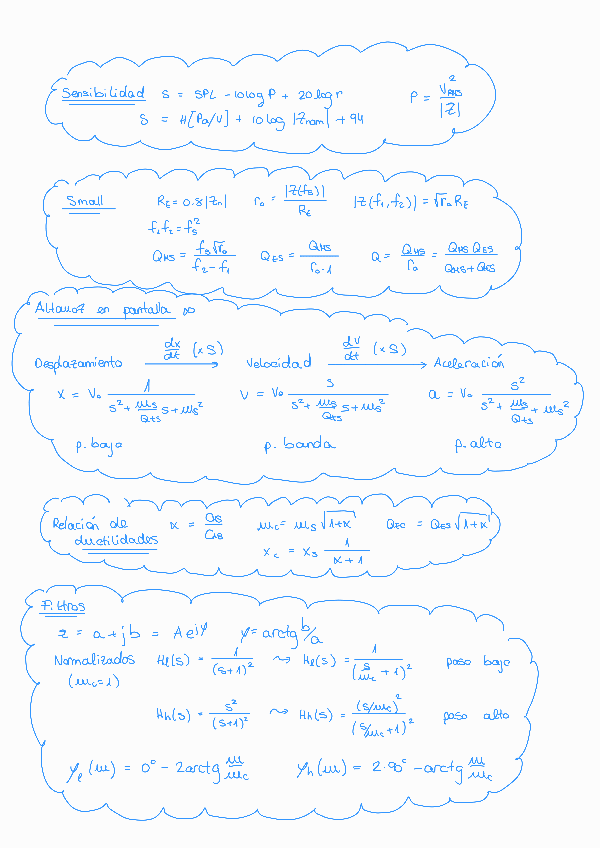 Sensibilidad S = SPL - 10log P + 20log r P = V_RMS² / |Z|
S = H[Pa/V] + 10 log |Znom| + 94
Small R_E = 0.8|Zn| r₀ = |Z(fs)| / R_E |Z(f₁,f₂)| = √r₀ R_E
f₁f₂ = fs²
Q_MS = fs√r₀ / f₂ - f₁ Q_ES = Q_MS / r₀-1 Q = Q_MS / r₀ = Q_MS Q_ES / Q_MS + Q_ES
Altavoz en pantalla ∞
Desplazamiento dx/dt (x S) Velocidad dV/dt (x S) Aceleración
x = V₀ 1 / s² + ωs/Qts s + ωs² v = V₀ s / s² + ωs/Qts s + ωs² a = V₀ s² / s² + ωs/Qts + ωs²
p. bajo p. banda p. alto
Relación de ductilidades α = C_AS / C_AB ω_c = ω_s √1+α Q_EC = Q_ES √1+α
x_c = x_s 1 / α + 1
Filtros
z = a + jb = A e^jφ φ = arctg b/a
Normalizados Hl(s) = 1 / (s+1)² ⇝ Hl(s) = 1 / (s/ωc + 1)² paso bajo
(ωc=1)
Hh(s) = s² / (s+1)² ⇝ Hh(s) = (s/ωc)² / (s/ωc + 1)² paso alto
φl(ω) = 0° - 2arctg ω/ωc φh(ω) = 2·90° - arctg ω/ωc